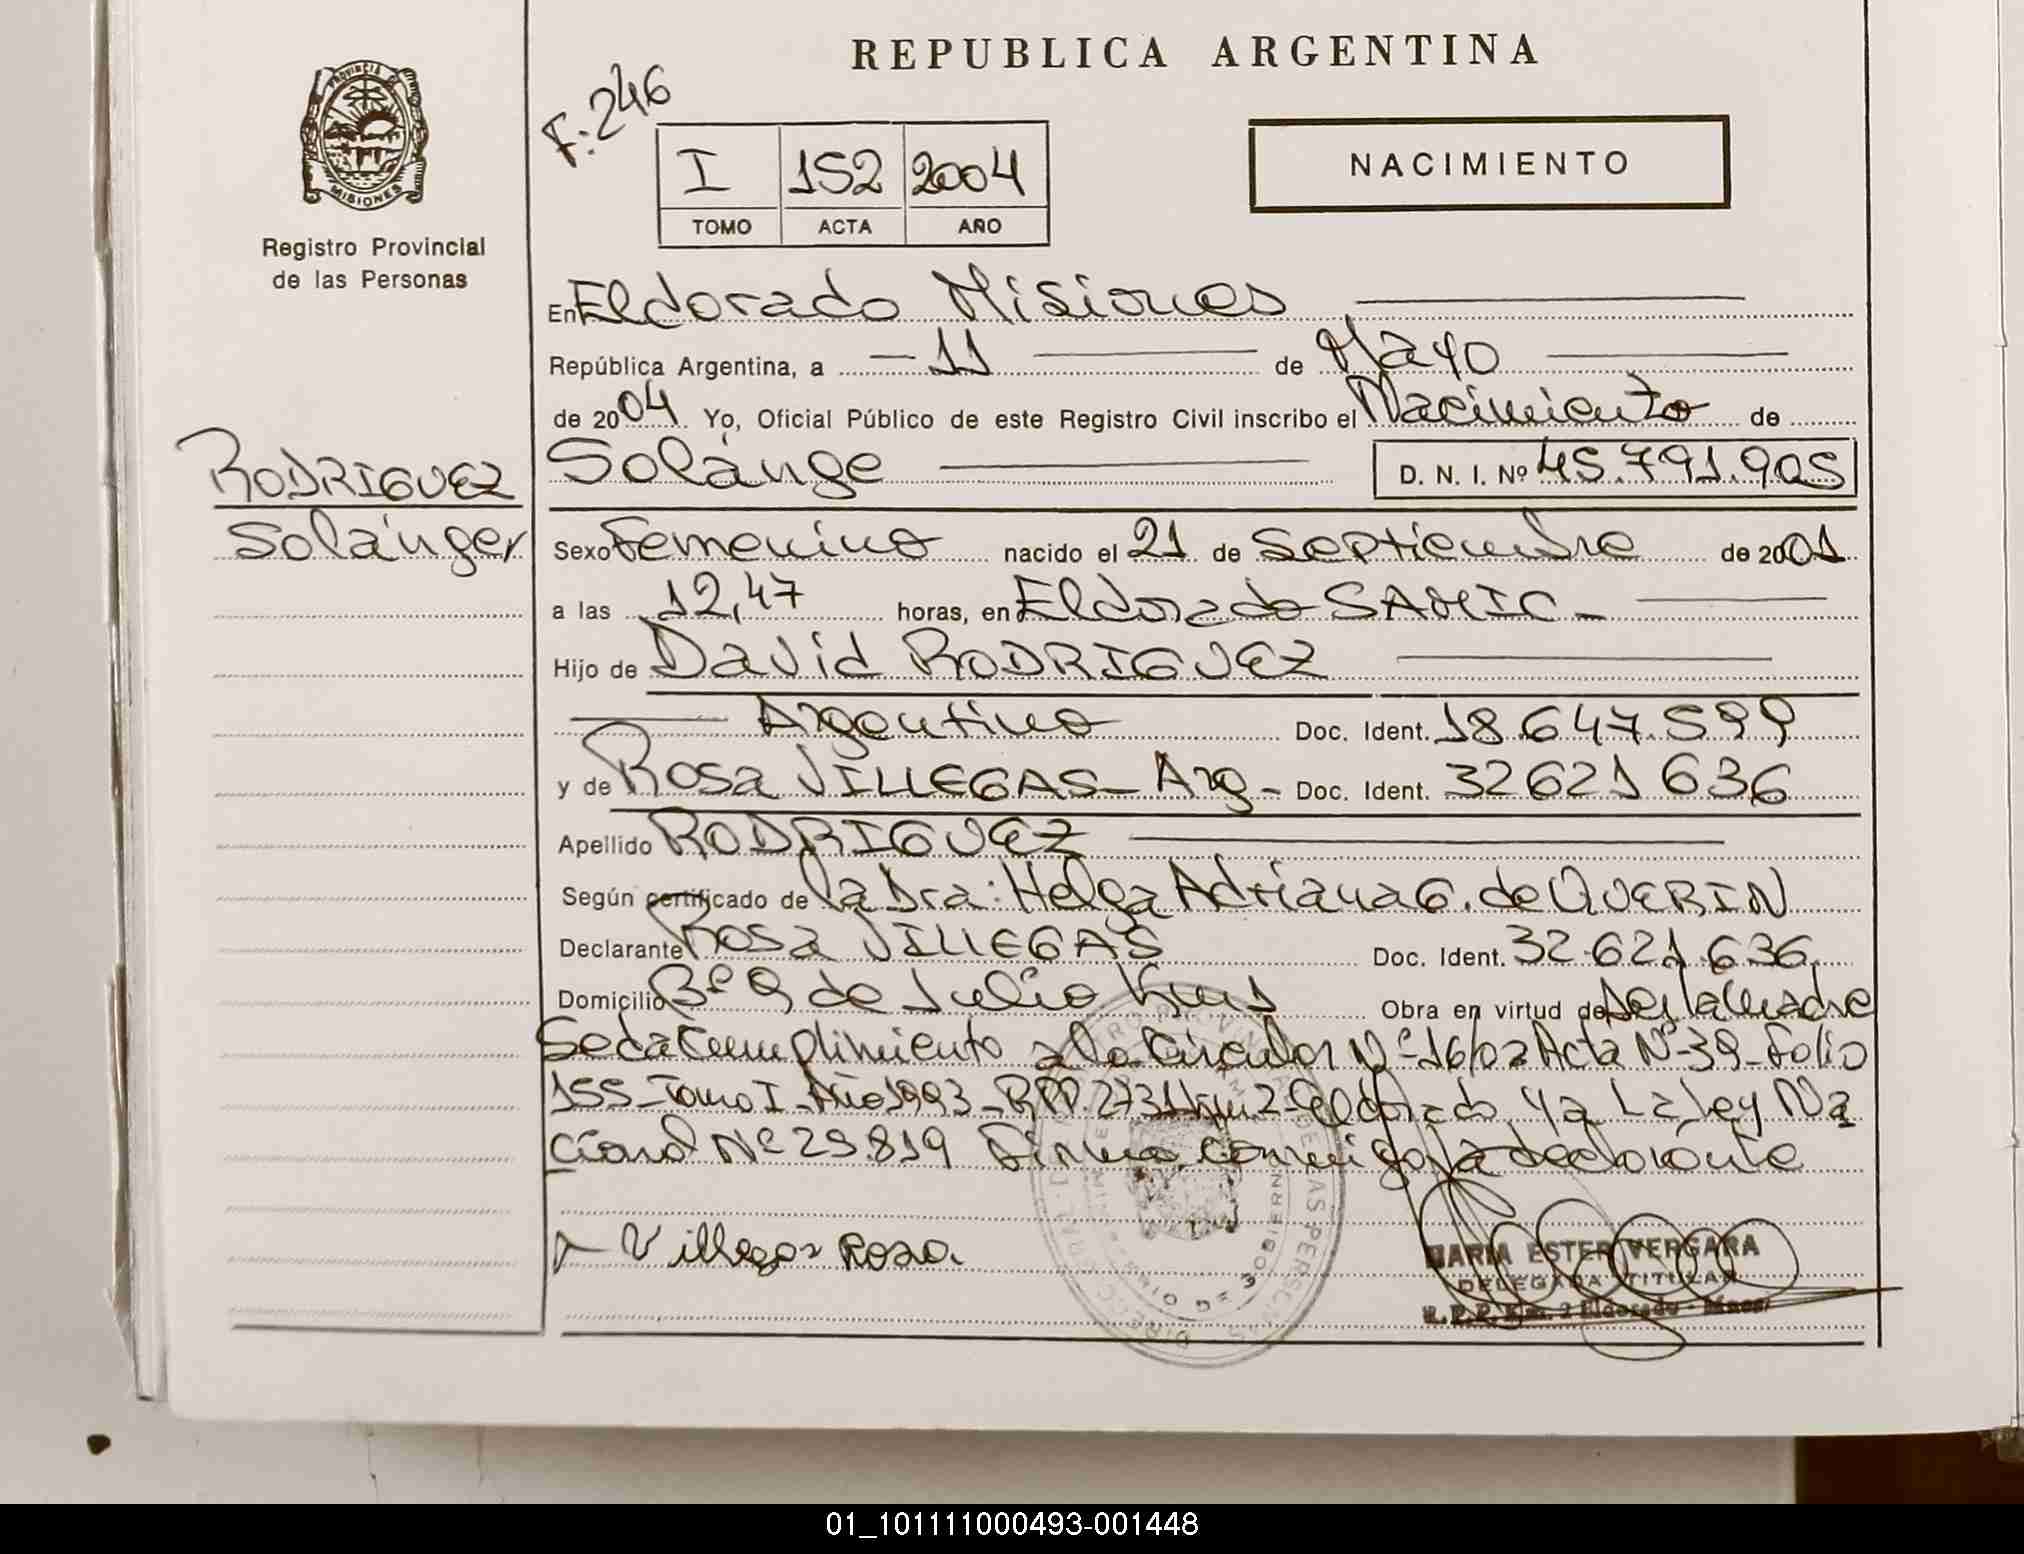 REPUBLICA ARGENTINA
PROVINCIA DE
MISIONES
Registro Provincial
de las Personas
F:246
I 152 2004
TOMO ACTA AÑO
NACIMIENTO
En Eldorado Misiones
República Argentina, a 11 de Mayo
de 2004 Yo, Oficial Público de este Registro Civil inscribo el Nacimiento de
Solange D. N. I. Nº 45.791.905
RODRIGUEZ
Solanger
Sexo Femenino nacido el 21 de Septiembre de 2001
a las 12,47 horas, en Eldorado SAMIC -
Hijo de David RODRIGUEZ
Argentino Doc. Ident. 18.647.599
y de Rosa VILLEGAS - Arg - Doc. Ident. 32621636
Apellido RODRIGUEZ
Según certificado de la Dra: Helga Adriana G. de QUERIN
Declarante Rosa VILLEGAS Doc. Ident. 32.621.636
Domicilio Bº 9 de Julio Km 1 Obra en virtud de Ser la Madre
Se da Cumplimiento a la Circular Nº 16/02 Acta Nº 39 - Folio
155 - Tomo I - Año 1993 - RPP. 2731 Km 2 - Eldorado y a La Ley Na
cional Nº 25.819 Firma conmigo la declarante
Villegas Rosa
MARIA ESTER VERGARA
DELEGADA TITULAR
R.P.P. Km. 2 Eldorado - Mnes
01_101111000493-001448